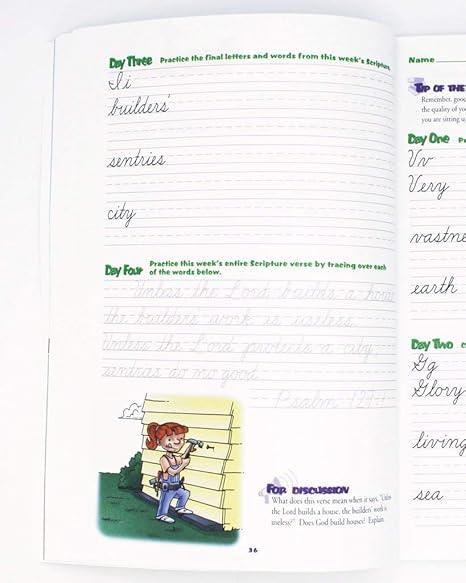 Day Three Practice the final letters and words from this week's Scripture.
Ii
builders'
sentries
city
Day Four Practice this week's entire Scripture verse by tracing over each
of the words below.
Unless the Lord builds a house
the builders' work is useless.
Unless the Lord protects a city,
sentries do no good.
Psalm 127:1
For Discussion
What does this verse mean when it says, "Unless
the Lord builds a house, the builders' work is
useless?" Does God build houses? Explain.
36
Name
Tip of the
Remember, good
the quality of your
you are sitting u
Day One
Vv
Very
vastne
earth
Day Two
Gg
Glory
living
sea